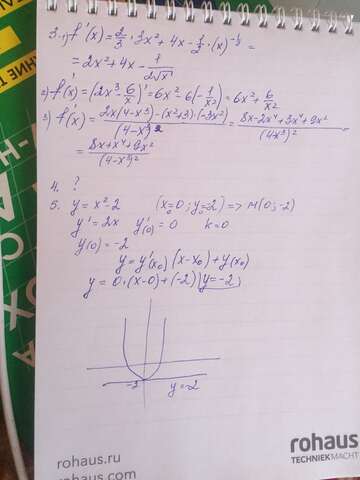 3. 1) f'(x) = 2/3 · 3x² + 4x - 1/2 · (x)^(-1/2) =
= 2x² + 4x - 1/(2√x)
2) f'(x) = (2x³ - 6/x)' = 6x² - 6(-1/x²) = 6x² + 6/x²
3) f'(x) = (2x(4-x³) - (x²+3)·(-3x²))/(4-x³)² = (8x - 2x⁴ + 3x⁴ + 9x²)/(4-x³)² =
= (8x + x⁴ + 9x²)/(4-x³)²
4. ?
5. y = x² - 2 (x₀=0; y₀=-2) => M(0;-2)
y' = 2x y'(0) = 0 k=0
y(0) = -2
y = y'(x₀)(x-x₀) + y(x₀)
y = 0·(x-0) + (-2) y=-2
-2 y=-2
rohaus
TECHNIEKMACHT
rohaus.ru
rohaus.com